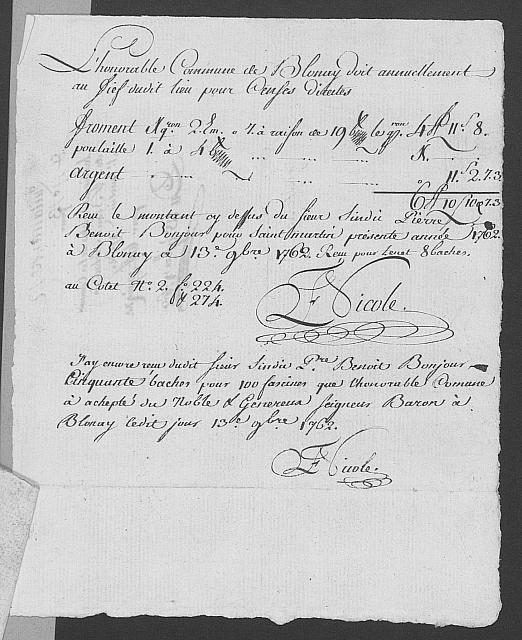 L'honorable Commune de Blonay doit annuellement
au fief dudit lieu pour Censes directes
froment 2. Em. à raison de 19 le qron 4 ff 11 s 8.
poulaille 1. à 4 ... ... ...
argent ... ... ... 11 s 2.7.3
6 ff 10 s 10 q 7.3
Reçu le montant cy dessus du sieur Sindic Pierre
Benoit Bonjour pour Saint martin présente année 1762.
à Blonay ce 13e 9bre 1762. Reçu pour le net 8 baches.
au Cotet No. 2. fo 224.
& 274.
F Nicole.
J'ay encore reçu dudit sieur Sindic Pre Benoit Bonjour
Cinquante baches pour 100 fascines que l'honorable Comune
à achepté du Noble & Genereux seigneur Baron à
Blonay ledit jour 13e 9bre 1762.
F Nicole.